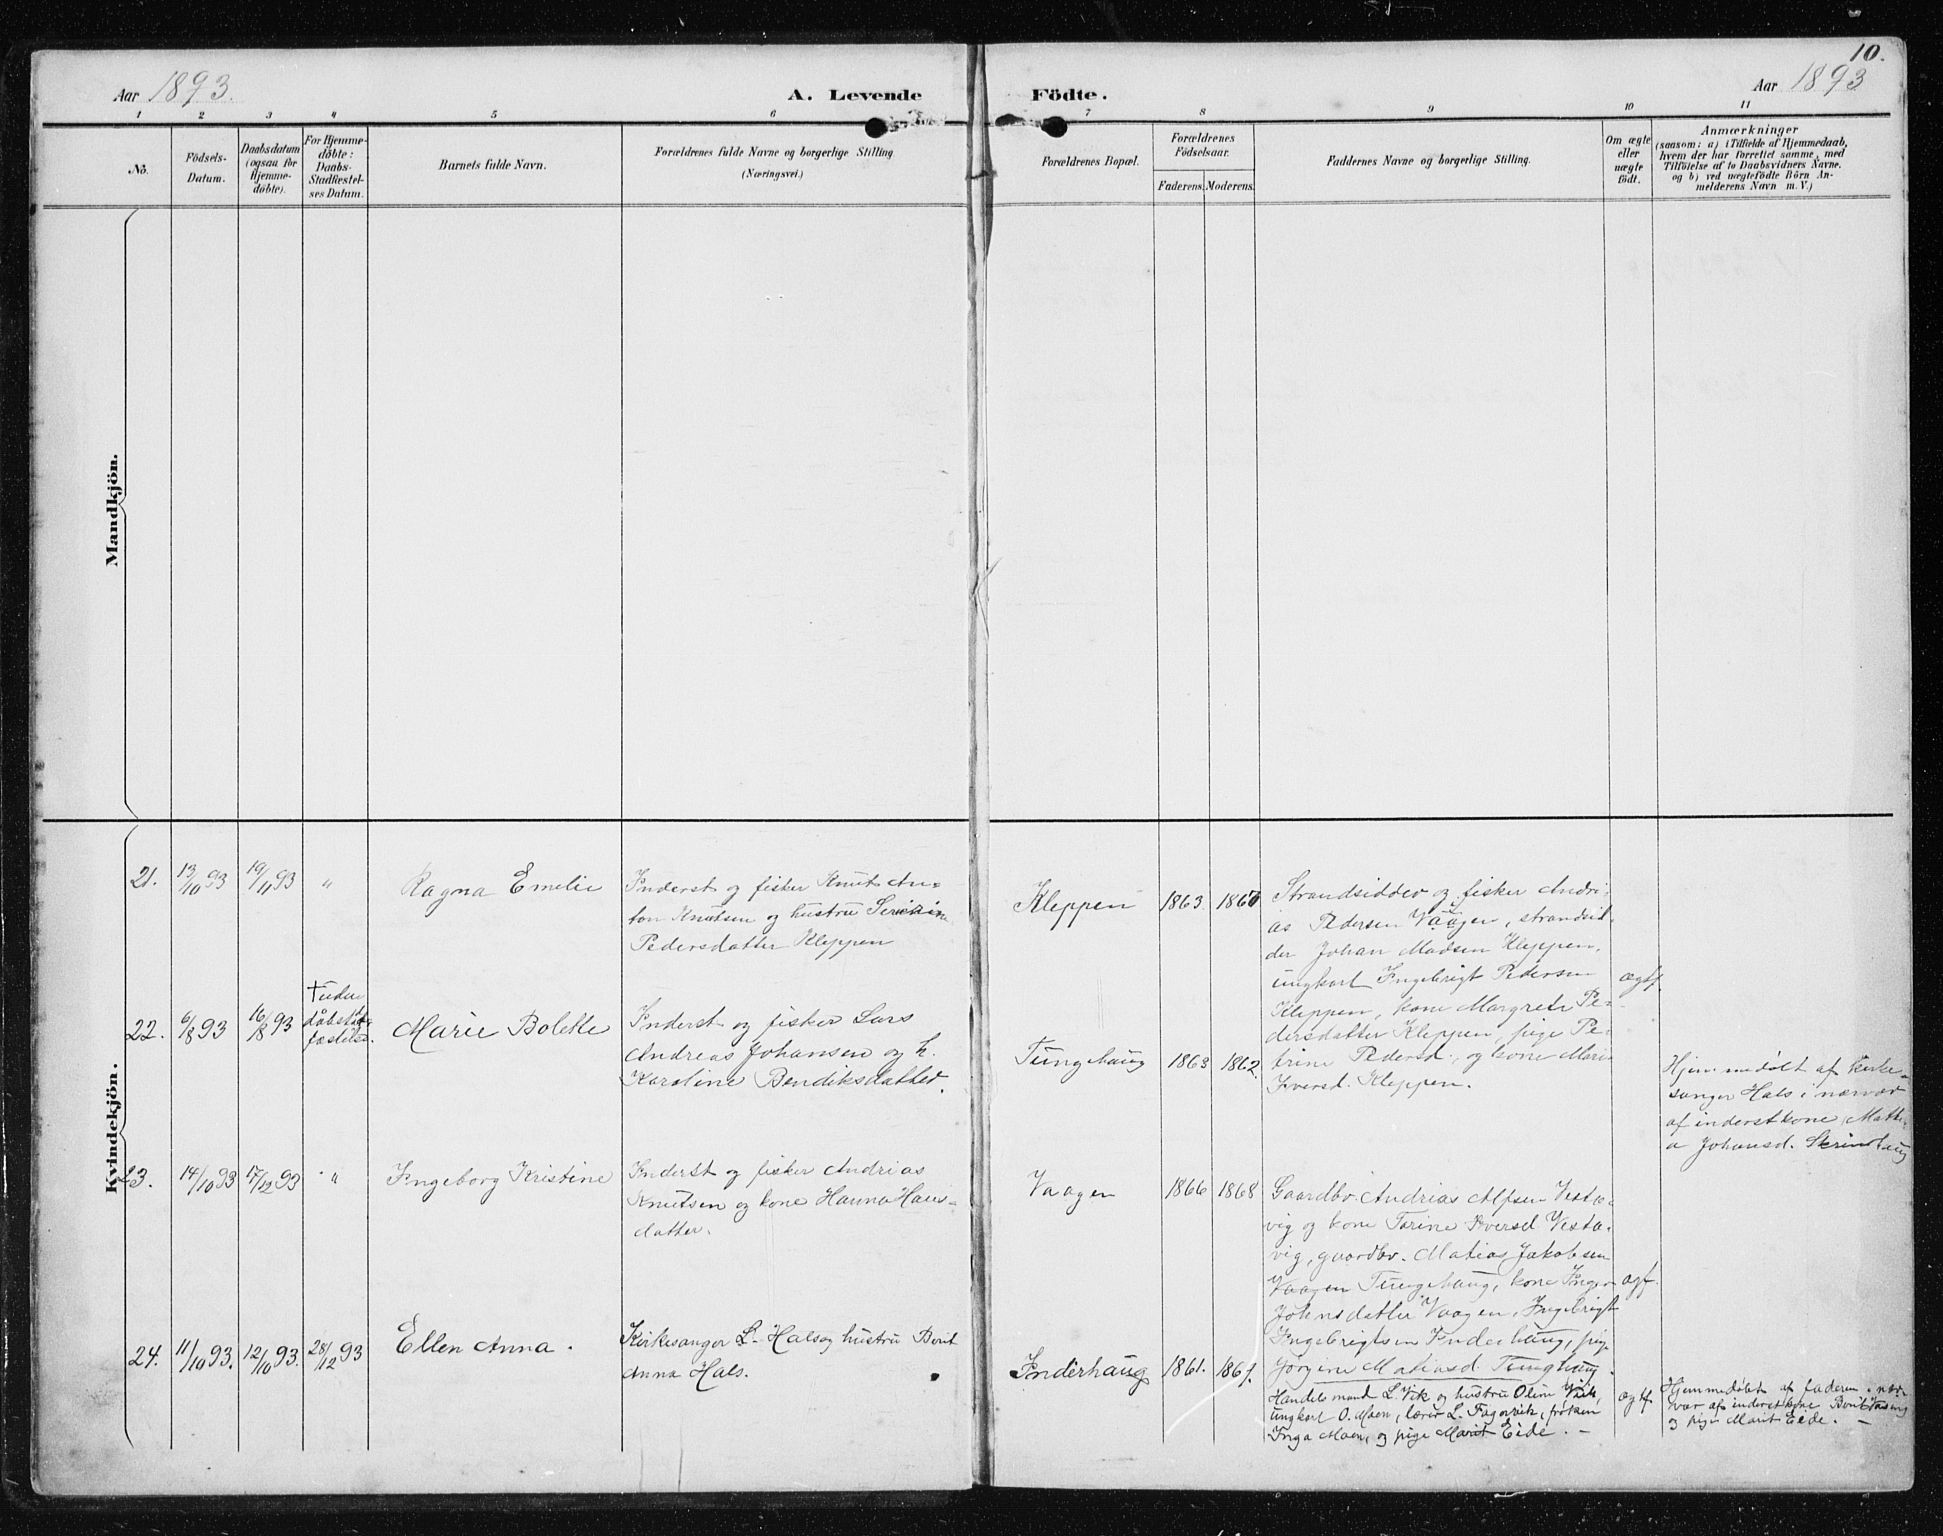 10.
Aar 1893.
A. Levende Födte.
Aar 1893
1 2 3 4 5 6 7 8 9 10 11
No.
Födsels-
Datum.
Daabsdatum
(ogsaa for
Hjemme-
döbte).
For Hjemme-
döbte:
Daabs-
Stadfæstel-
ses Datum.
Barnets fulde Navn.
Forældrenes fulde Navne og borgerlige Stilling.
(Næringsvei.)
Forældrenes Bopæl.
Forældrenes
Födselsaar.
Faderens. Moderens.
Faddernes Navne og borgerlige Stilling.
Om ægte
eller
uægte
födt.
Anmærkninger
(saasom: a) i Tilfælde af Hjemmedaab,
hvem der har forrettet samme, med
Tilföielse af to Daabsvidners Navne.
og b) ved uægtefödte Börn An-
melderens Navn m. V.)
Mandkjön.
Kvindekjön.
21.
13/10 93
19/11 93
"
Ragna Emelie
Inderst og fisker Knut An-
ton Knutsen og hustru
Pedersdatter Kleppen
Kleppen
1863
1867
Strandsidder og fisker Andri-
as Pedersen Vaagen, strandsid-
der Johan Madsen Kleppen,
ungkarl Ingebrigt Pedersen
Kleppen, kone Margrete Pe-
dersdatter Kleppen, pige Pe-
trine Pedersd., og kone Marie
Iversd. Kleppen.
ægtf.
22.
6/8 93
16/8 93
† uden
dåbstad-
fæstelse.
Marie Bolette
Inderst og fisker Lars
Andreas Johansen og h.
Karoline Bendiksdatter.
Tungehaug
1863
1862.
Hjemmedøbt af kirke-
sanger Hals i nærvær
af inderstkone Mathi-
a Johansd. Skrinshaug
23.
14/10 93
17/12 93
"
Ingeborg Kristine
Inderst og fisker Andrias
Knutsen og kone Hanna Hans-
datter.
Vaagen
1866
1868
Gaardbr. Andrias Alfsen Vesta-
vig og kone Tarine Iversd Vesta-
vig, gaardbr. Matias Jakobsen
Vaagen Tungehaug, kone Inger
Johnsdatter Vaagen, Ingebrigt
Ingebrigtsen Inderhaug, pige
Jørgine Matiasd. Tunghaug.
ægf.
24.
11/10 93.
12/10 93.
28/12 93
Ellen Anna.
Kirkesanger L. Hals og hustru Berit
Anna Hals.
Inderhaug
1861.
1867.
Handelsmand L. Vik og hustru Oline Vik,
ungkarl O. Moen, lærer L. Fagervik, frøken
Inga Moen, og pige Marit Eide. -
ægtf.
Hjemmedøbt af faderen i nær-
vær af inderstkone Berit
og pige Marit Eide. -